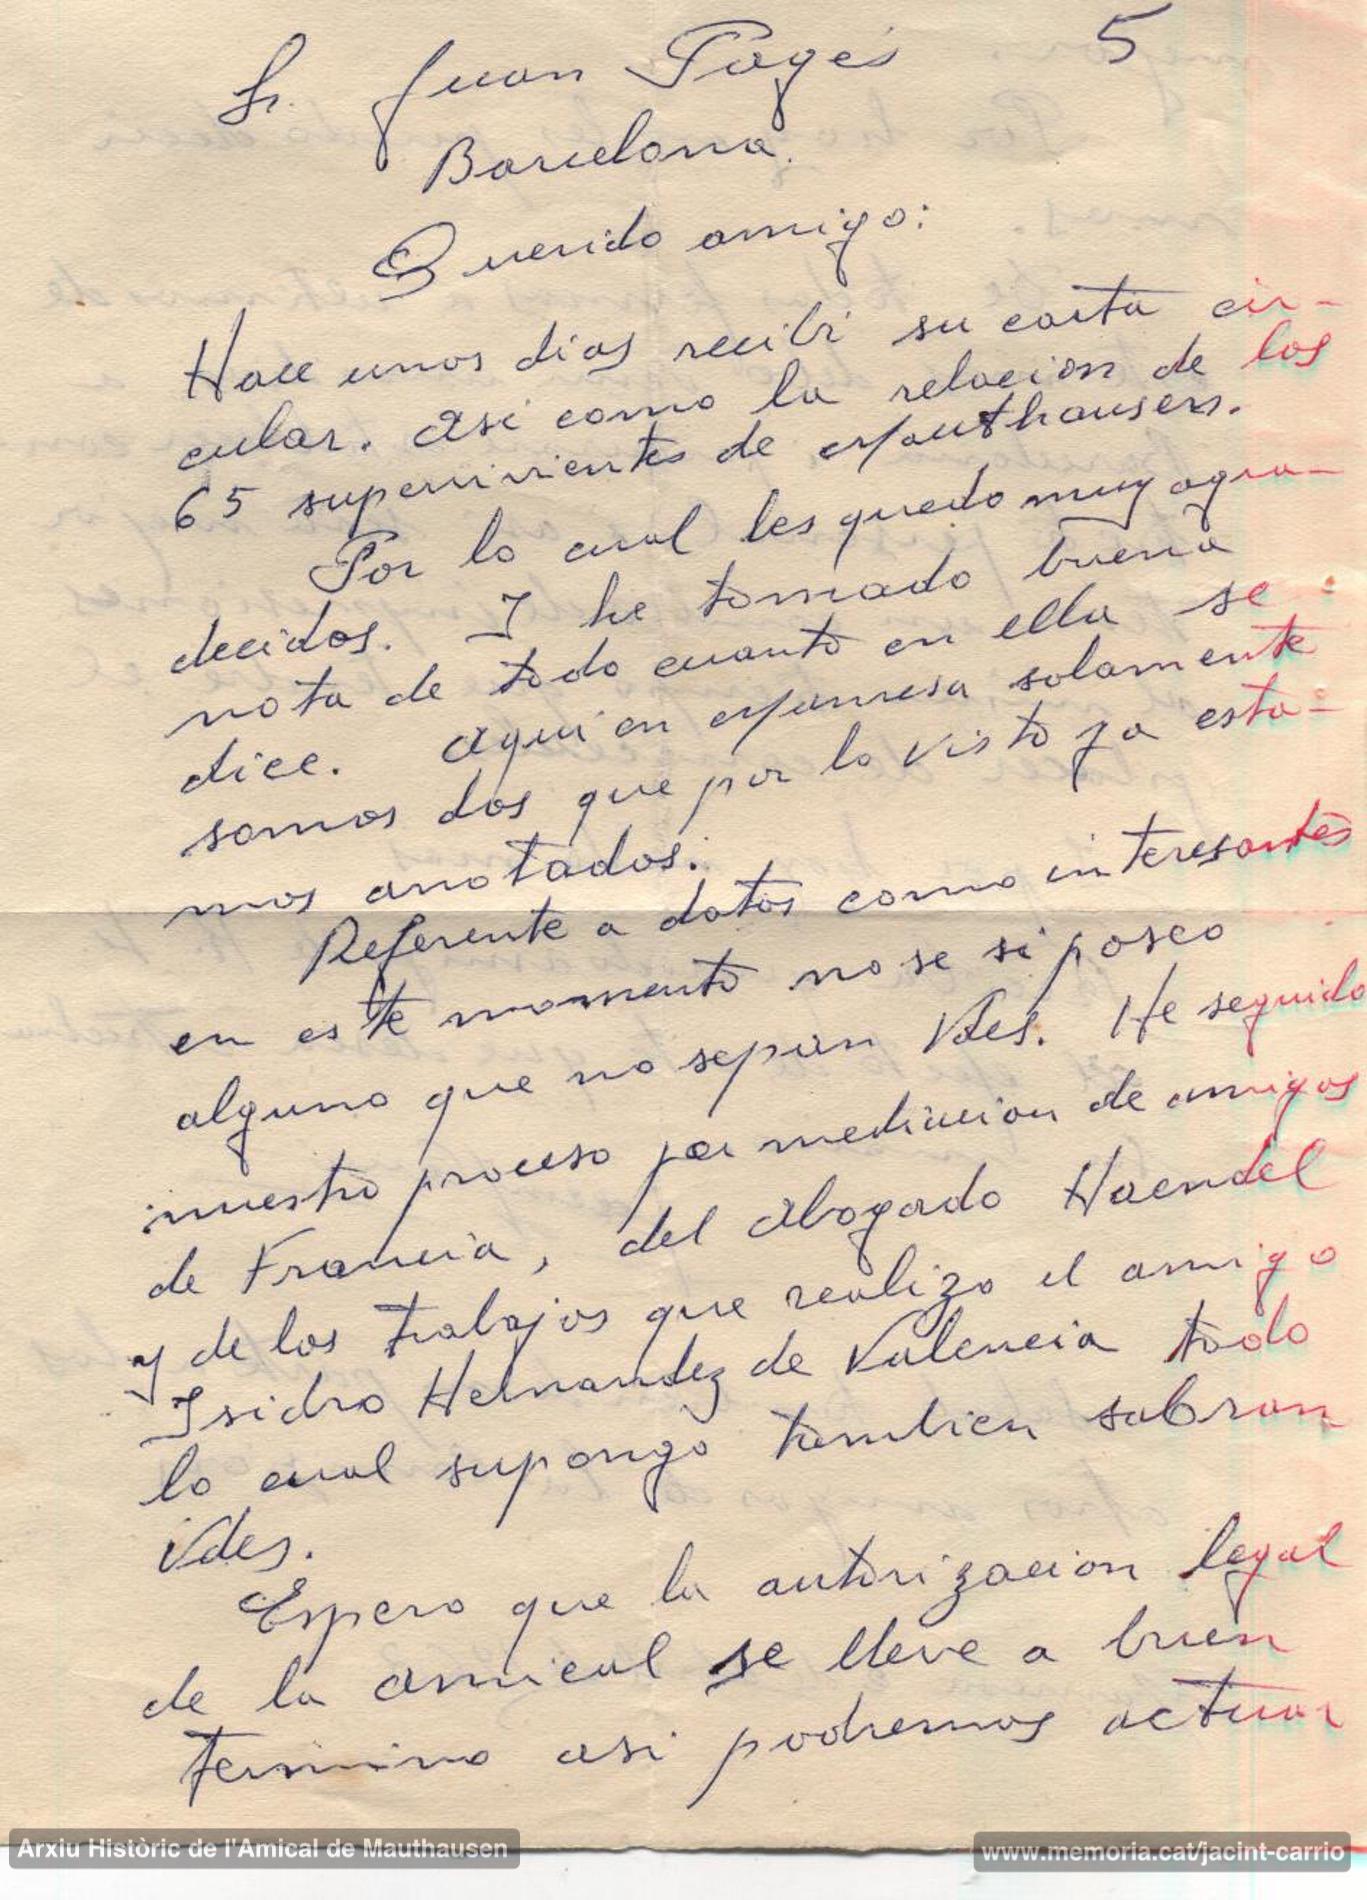 5
Sr. Juan Pagés
Barcelona.
Querido amigo:
Hace unos dias recibi su carta cir-
cular. Asi como la relacion de los
65 supervivientes de Mauthausen.
Por lo cual les quedo muy agra-
decidos. I he tomado buena
nota de todo cuanto en ella se
dice. Aqui en Manresa solamente
somos dos que por lo visto ya esta-
mos anotados.
Referente a datos como interesantes
en este momento no se si poseo
alguno que no sepan Vdes. He seguido
nuestro proceso por mediacion de amigos
de Francia, del abogado Haendel
y de los trabajos que realizo el amigo
Isidro Hernandez de Valencia todo
lo cual supongo tambien sabran
Vdes.
Espero que la autorizacion legal
de la amical se lleve a buen
termino asi podremos actuar
Arxiu Històric de l'Amical de Mauthausen
www.memoria.cat/jacint-carrio